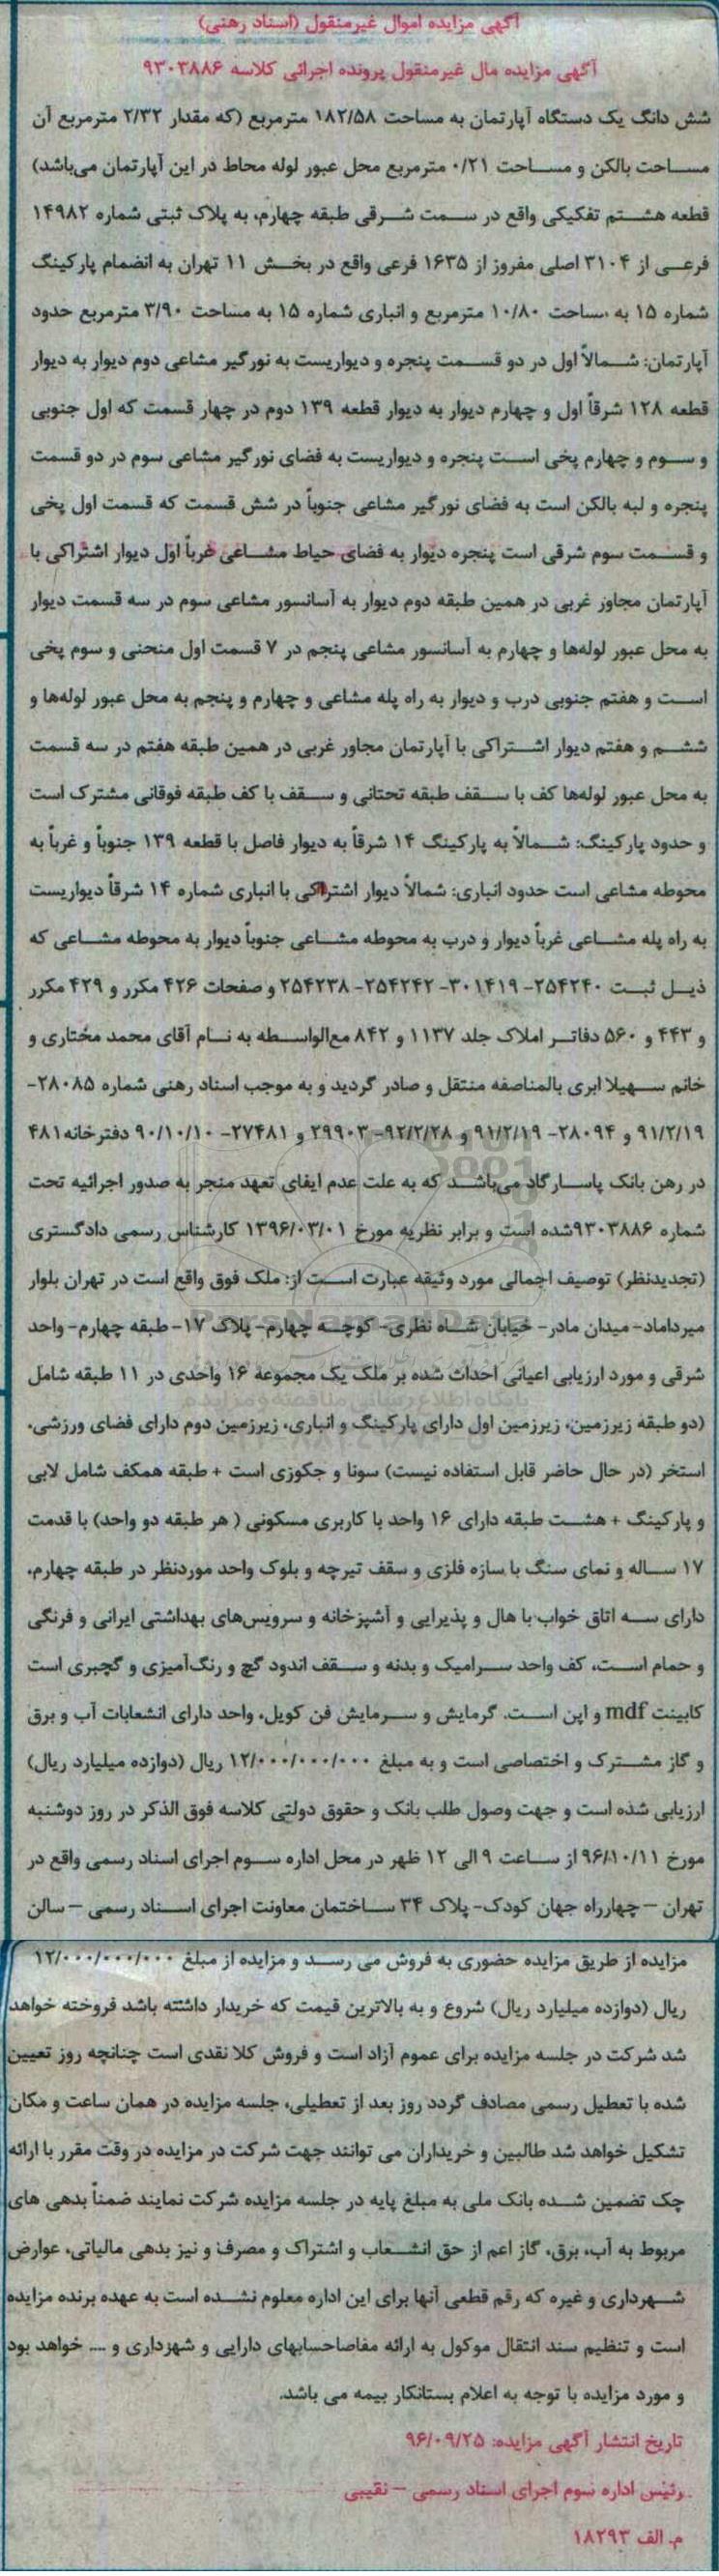 آگهی مزایده اموال غیرمنقول (اسناد رهنی)
آگهی مزایده مال غیرمنقول پرونده اجرائی کلاسه ۹۳۰۳۸۸۶
شش دانگ یک دستگاه آپارتمان به مساحت ۱۸۲/۵۸ مترمربع (که مقدار ۲/۳۲ مترمربع آن
مساحت بالکن و مساحت ۰/۲۱ مترمربع محل عبور لوله محاط در این آپارتمان می‌باشد)
قطعه هشتم تفکیکی واقع در سمت شرقی طبقه چهارم، به پلاک ثبتی شماره ۱۴۹۸۲
فرعی از ۳۱۰۴ اصلی مفروز از ۱۶۳۵ فرعی واقع در بخش ۱۱ تهران به انضمام پارکینگ
شماره ۱۵ به مساحت ۱۰/۸۰ مترمربع و انباری شماره ۱۵ به مساحت ۳/۹۰ مترمربع حدود
آپارتمان: شمالاً اول در دو قسمت پنجره و دیواریست به نورگیر مشاعی دوم دیوار به دیوار
قطعه ۱۲۸ شرقاً اول و چهارم دیوار به دیوار قطعه ۱۳۹ دوم در چهار قسمت که اول جنوبی
و سوم و چهارم پخی است پنجره و دیواریست به فضای نورگیر مشاعی سوم در دو قسمت
پنجره و لبه بالکن است به فضای نورگیر مشاعی جنوباً در شش قسمت که قسمت اول پخی
و قسمت سوم شرقی است پنجره دیوار به فضای حیاط مشاعی غرباً اول دیوار اشتراکی با
آپارتمان مجاور غربی در همین طبقه دوم دیوار به آسانسور مشاعی سوم در سه قسمت دیوار
به محل عبور لوله‌ها و چهارم به آسانسور مشاعی پنجم در ۷ قسمت اول منحنی و سوم پخی
است و هفتم جنوبی درب و دیوار به راه پله مشاعی و چهارم و پنجم به محل عبور لوله‌ها و
ششم و هفتم دیوار اشتراکی با آپارتمان مجاور غربی در همین طبقه هفتم در سه قسمت
به محل عبور لوله‌ها کف با سقف طبقه تحتانی و سقف با کف طبقه فوقانی مشترک است
و حدود پارکینگ: شمالاً به پارکینگ ۱۴ شرقاً به دیوار فاصل با قطعه ۱۳۹ جنوباً و غرباً به
محوطه مشاعی است حدود انباری: شمالاً دیوار اشتراکی با انباری شماره ۱۴ شرقاً دیواریست
به راه پله مشاعی غرباً دیوار و درب به محوطه مشاعی جنوباً دیوار به محوطه مشاعی که
ذیل ثبت ۲۵۴۲۴۰- ۳۰۱۴۱۹- ۲۵۴۲۴۲- ۲۵۴۲۳۸ و صفحات ۴۲۶ مکرر و ۴۲۹ مکرر
و ۴۴۳ و ۵۶۰ دفاتر املاک جلد ۱۱۳۷ و ۸۴۲ مع‌الواسطه به نام آقای محمد مختاری و
خانم سهیلا ابری بالمناصفه منتقل و صادر گردید و به موجب اسناد رهنی شماره ۲۸۰۸۵-
۹۱/۲/۱۹ و ۲۸۰۹۴- ۹۱/۲/۱۹ و ۹۲/۲/۲۸- ۲۹۹۰۳ و ۲۷۴۸۱- ۹۰/۱۰/۱۰ دفترخانه ۴۸۱
در رهن بانک پاسارگاد می‌باشد که به علت عدم ایفای تعهد منجر به صدور اجرائیه تحت
شماره ۹۳۰۳۸۸۶شده است و برابر نظریه مورخ ۱۳۹۶/۰۳/۰۱ کارشناس رسمی دادگستری
(تجدیدنظر) توصیف اجمالی مورد وثیقه عبارت است از: ملک فوق واقع است در تهران بلوار
میرداماد- میدان مادر- خیابان شاه نظری- کوچه چهارم- پلاک ۱۷- طبقه چهارم- واحد
شرقی و مورد ارزیابی اعیانی احداث شده بر ملک یک مجموعه ۱۶ واحدی در ۱۱ طبقه شامل
(دو طبقه زیرزمین، زیرزمین اول دارای پارکینگ و انباری، زیرزمین دوم دارای فضای ورزشی،
استخر (در حال حاضر قابل استفاده نیست) سونا و جکوزی است + طبقه همکف شامل لابی
و پارکینگ + هشت طبقه دارای ۱۶ واحد با کاربری مسکونی ( هر طبقه دو واحد) با قدمت
۱۷ ساله و نمای سنگ با سازه فلزی و سقف تیرچه و بلوک واحد موردنظر در طبقه چهارم،
دارای سه اتاق خواب با هال و پذیرایی و آشپزخانه و سرویس‌های بهداشتی ایرانی و فرنگی
و حمام است، کف واحد سرامیک و بدنه و سقف اندود گچ و رنگ‌آمیزی و گچبری است
کابینت mdf و اپن است. گرمایش و سرمایش فن کویل، واحد دارای انشعابات آب و برق
و گاز مشترک و اختصاصی است و به مبلغ ۱۲/۰۰۰/۰۰۰/۰۰۰ ریال (دوازده میلیارد ریال)
ارزیابی شده است و جهت وصول طلب بانک و حقوق دولتی کلاسه فوق الذکر در روز دوشنبه
مورخ ۹۶/۱۰/۱۱ از ساعت ۹ الی ۱۲ ظهر در محل اداره سوم اجرای اسناد رسمی واقع در
تهران – چهارراه جهان کودک- پلاک ۳۴ ساختمان معاونت اجرای اسناد رسمی – سالن
مزایده از طریق مزایده حضوری به فروش می رسد و مزایده از مبلغ ۱۲/۰۰۰/۰۰۰/۰۰۰
ریال (دوازده میلیارد ریال) شروع و به بالاترین قیمت که خریدار داشته باشد فروخته خواهد
شد شرکت در جلسه مزایده برای عموم آزاد است و فروش کلا نقدی است چنانچه روز تعیین
شده با تعطیل رسمی مصادف گردد روز بعد از تعطیلی، جلسه مزایده در همان ساعت و مکان
تشکیل خواهد شد طالبین و خریداران می توانند جهت شرکت در مزایده در وقت مقرر با ارائه
چک تضمین شده بانک ملی به مبلغ پایه در جلسه مزایده شرکت نمایند ضمناً بدهی های
مربوط به آب، برق، گاز اعم از حق انشعاب و اشتراک و مصرف و نیز بدهی مالیاتی، عوارض
شهرداری و غیره که رقم قطعی آنها برای این اداره معلوم نشده است به عهده برنده مزایده
است و تنظیم سند انتقال موکول به ارائه مفاصاحسابهای دارایی و شهرداری و .... خواهد بود
و مورد مزایده با توجه به اعلام بستانکار بیمه می باشد.
تاریخ انتشار آگهی مزایده: ۹۶/۰۹/۲۵
رئیس اداره سوم اجرای اسناد رسمی – نقیبی
م. الف ۱۸۲۹۳